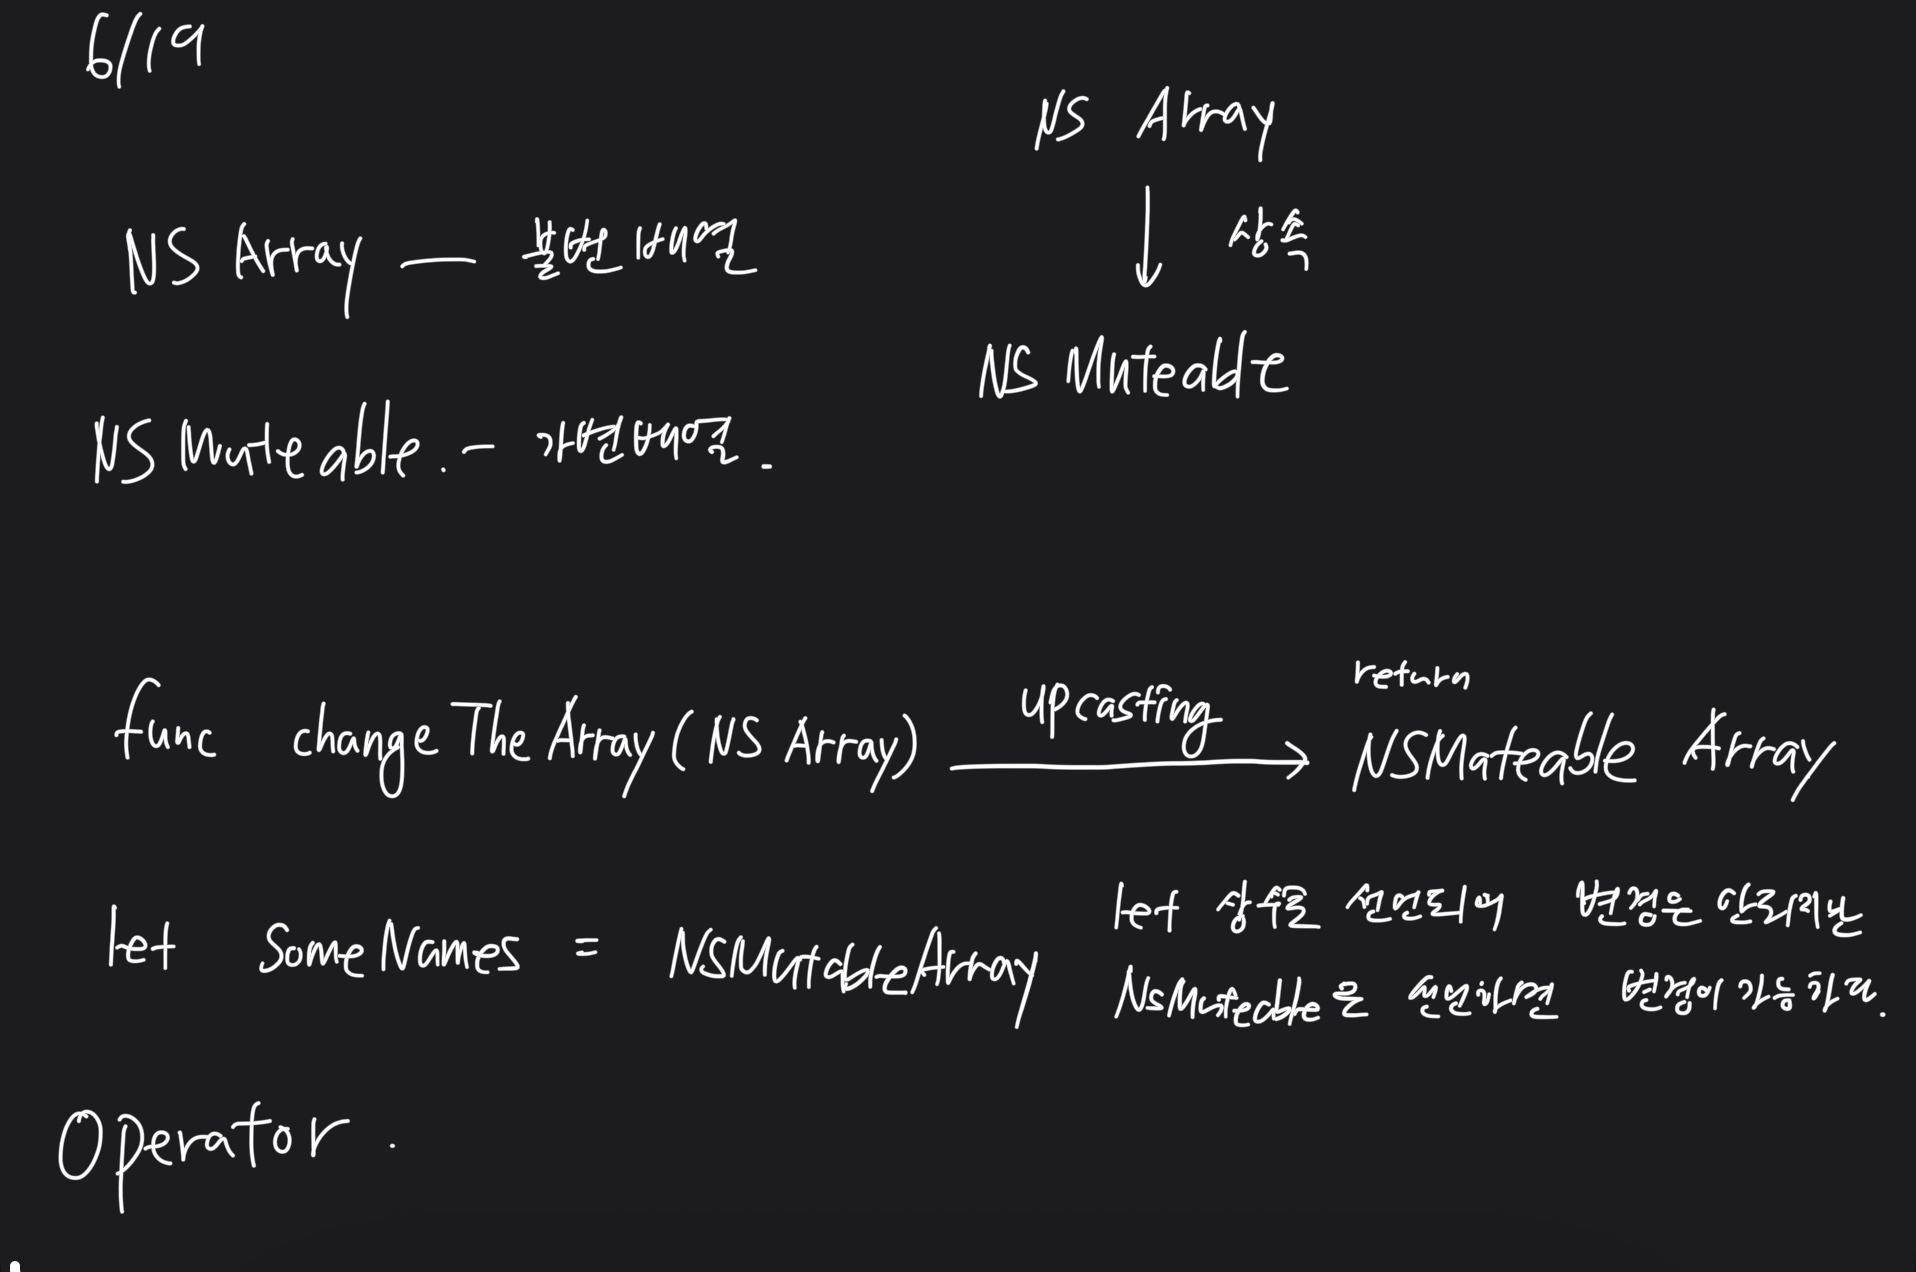 6/19
NS Array
상속
NS Muteable
NS Array — 불변 배열
NS Muteable. - 가변배열.
func changeTheArray (NS Array) upcasting return NSMateable Array
let SomeNames = NSMutableArray
let 상수로 선언되어 변경은 안되지만
NsMuteable은 선언하면 변경이 가능하다.
Operator.